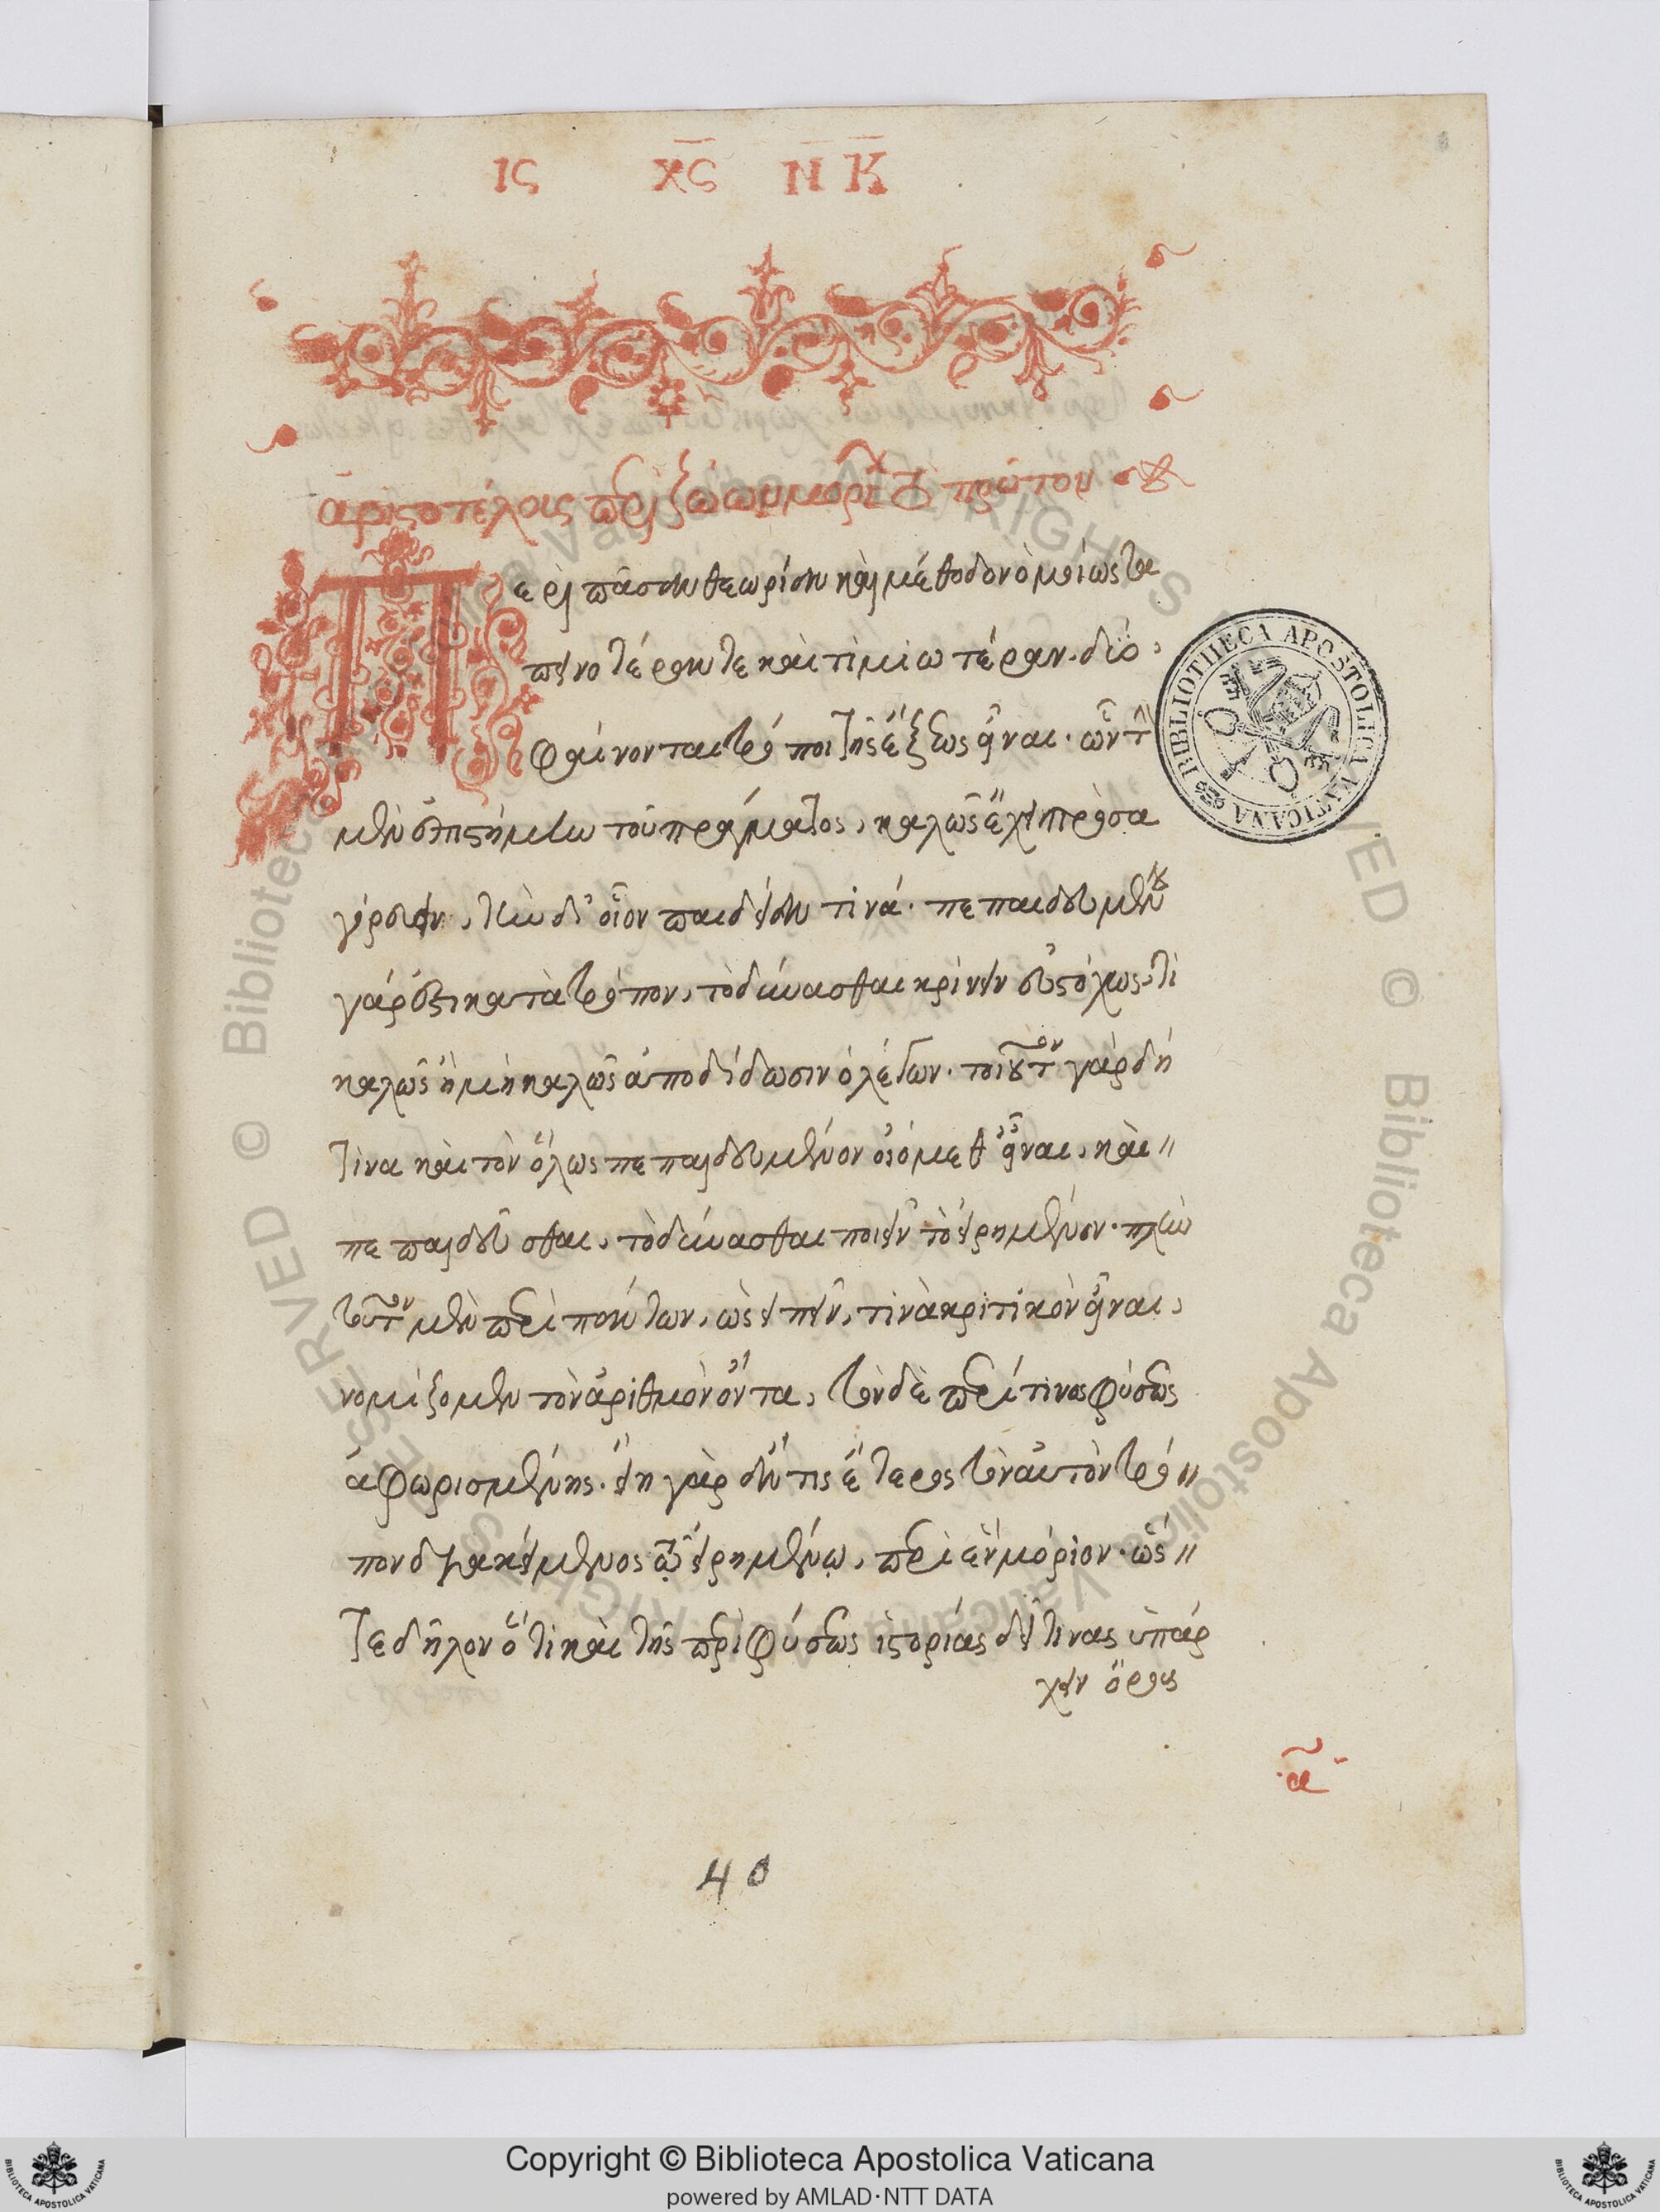 ΙϹ ΧϹ Ν Κ
ἀριστοτέλους περὶ ζώων μορίων πρῶτον
Περὶ πᾶσαν θεωρίαν καὶ μέθοδον ὁμοίως τα
πεινοτέραν τε καὶ τιμιωτέραν. διό,
φαίνονται τρόποι τῆς ἕξεως εἶναι. ὧν τ
μὲν ἐπιστήμην τοῦ πράγματος, καλῶς ἔχει προσα
γόρευειν, τὴν δ' οἷον παιδείαν τινά. πεπαιδευμένου
γάρ ἐστι κατὰ τρόπον, τὸ δύνασθαι κρίνειν εὐστόχως, τί
καλῶς ἢ μὴ καλῶς ἀποδίδωσιν ὁ λέγων. τοιοῦτον γὰρ δή
τινα καὶ τὸν ὅλως πεπαιδευμένον οἰόμεθ' εἶναι, καὶ
πεπαιδεῦσθαι, τὸ δύνασθαι ποιεῖν τὸ εἰρημένον. πλὴν
τοῦτον μὲν περὶ πάντων, ὡς εἰπεῖν, τινὰ κριτικὸν εἶναι,
νομίζομεν τὸν ἀριθμὸν ὄντα, τὸν δὲ περί τινος φύσεως
ἀφωρισμένης. εἴη γὰρ ἄν τις ἕτερος τὸν αὐτὸν τρό
πον διακείμενος τῷ εἰρημένῳ, περὶ ἓν μόριον. ὥς
τε δῆλον ὅτι καὶ τῆς περὶ φύσεως ἱστορίας δεῖ τινας ὑπάρ
χειν ὅρους
α
40
BIBLIOTHECA APOSTOLICA VATICANA
Copyright © Biblioteca Apostolica Vaticana
powered by AMLAD·NTT DATA